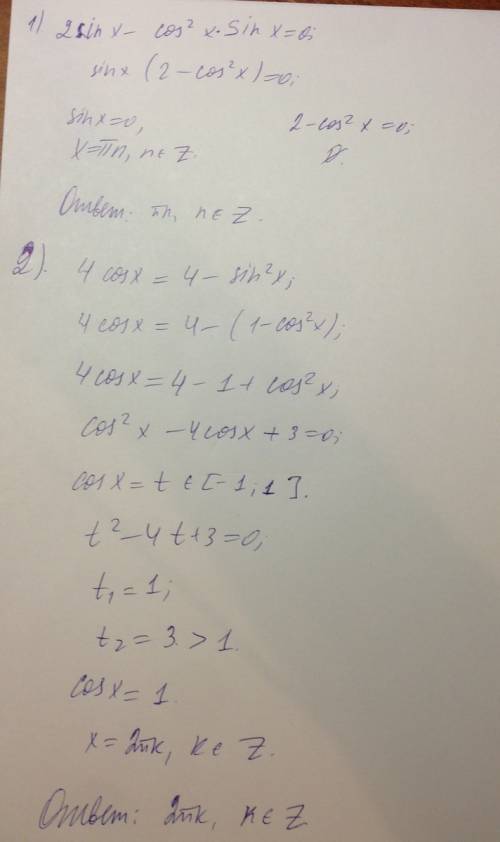 1) 2sin x - cos² x · sin x = 0;
sin x (2 - cos² x) = 0;
sin x = 0, 2 - cos² x = 0;
x = πn, n ∈ Z. ∅.
Ответ: πn, n ∈ Z.
2). 4 cos x = 4 - sin² x;
4 cos x = 4 - (1 - cos² x);
4 cos x = 4 - 1 + cos² x;
cos² x - 4 cos x + 3 = 0;
cos x = t ∈ [-1; 1].
t² - 4t + 3 = 0;
t₁ = 1;
t₂ = 3 > 1.
cos x = 1.
x = 2πk, k ∈ Z.
Ответ: 2πk, k ∈ Z